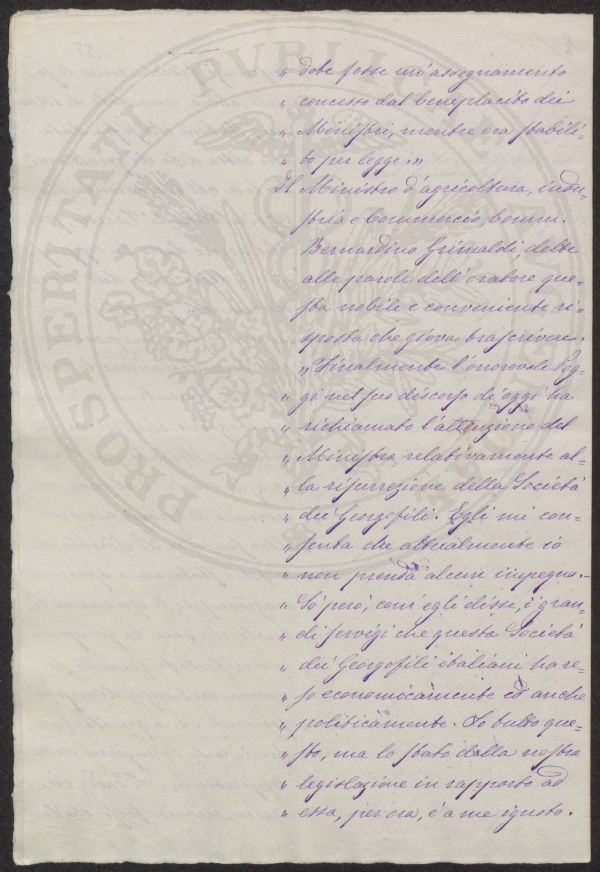 „ dobe fosse un'assegnamento
„ concesso dal beneplacito dei
„ Ministri, mentre era stabili=
„ to per legge. „
Il Ministro d'agricoltura, indu=
stria e Commercio, Comm:
Bernardino Grimaldi, dette
alle parole dell'oratore que=
sta nobile e conveniente ri=
sposta che giova trascrivere.
„ Finalmente l'onorevole Pog=
„ gi nel suo discorso di oggi ha
„ richiamato l'attenzione del
„ Ministro relativamente al=
„ la risurrezione della Società
„ dei Georgofili. Egli mi con=
„ senta che attualmente io
„ non prenda alcun impegno.–
„ So però, com'egli disse, i gran=
„ di servigi che questa Società
„ dei Georgofili italiani ha re=
„ so economicamente ed anche
„ politicamente. So tutto que=
„ sto, ma lo stato della nostra
„ legislazione in rapporto ad
„ essa, per ora, è a me ignoto.
PROSPERITATI PVBLICAE